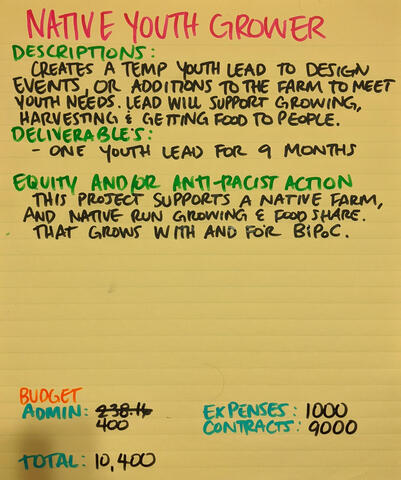 NATIVE YOUTH GROWER
DESCRIPTIONS:
CREATES A TEMP YOUTH LEAD TO DESIGN
EVENTS, OR ADDITIONS TO THE FARM TO MEET
YOUTH NEEDS. LEAD WILL SUPPORT GROWING,
HARVESTING & GETTING FOOD TO PEOPLE.
DELIVERABLE'S:
- ONE YOUTH LEAD FOR 9 MONTHS
EQUITY AND/OR ANTI-RACIST ACTION
THIS PROJECT SUPPORTS A NATIVE FARM,
AND NATIVE RUN GROWING & FOOD SHARE.
THAT GROWS WITH AND FOR BIPOC.
BUDGET
ADMIN: 238.16 EXPENSES: 1000
400 CONTRACTS: 9000
TOTAL: 10,400